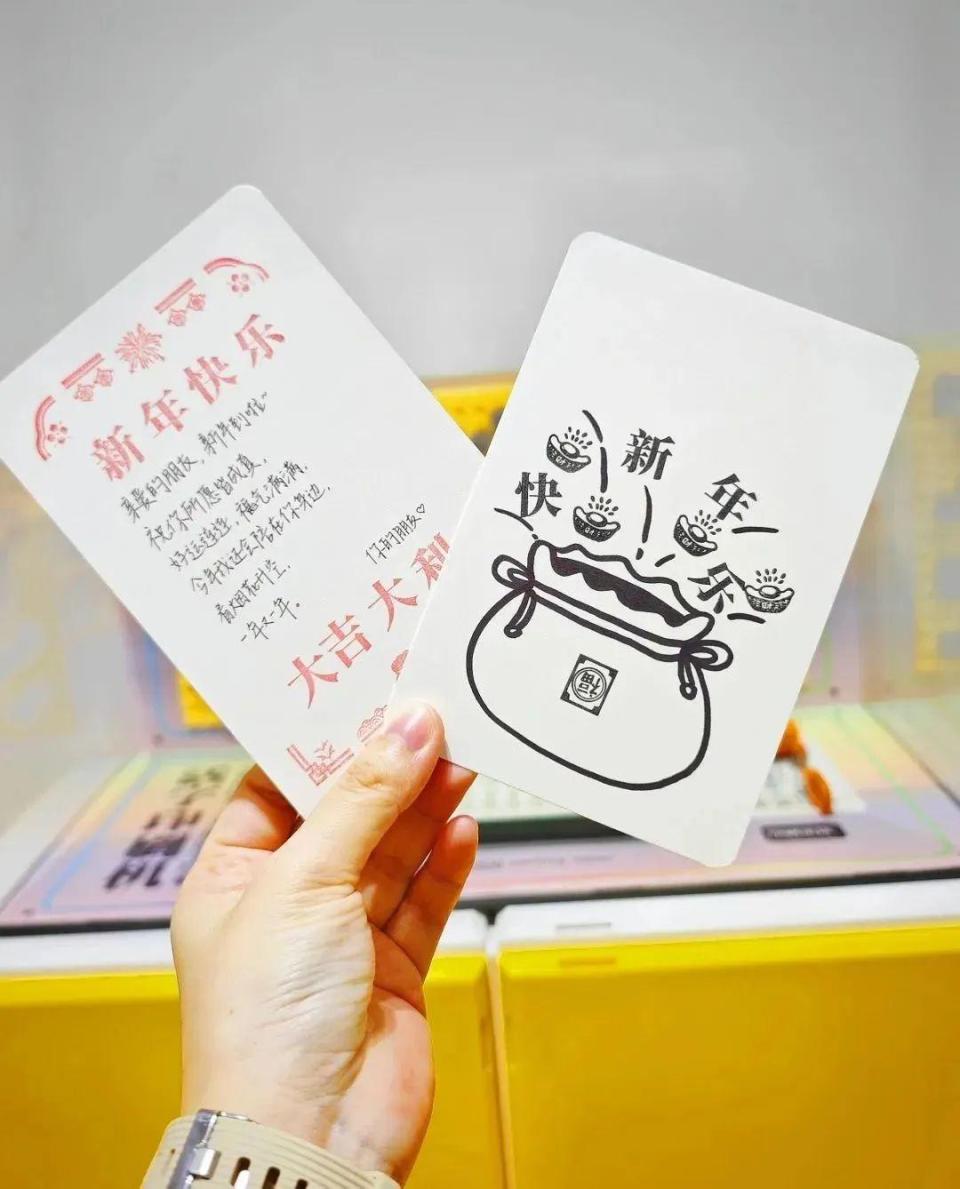 新年快乐
亲爱的朋友，新年到啦~
祝你所愿皆成真，
好运连连，福气满满，
今年我还会陪在你身边，
看烟花升空，
一年又一年。
你的朋友♡
大吉大利
新年
快乐
福